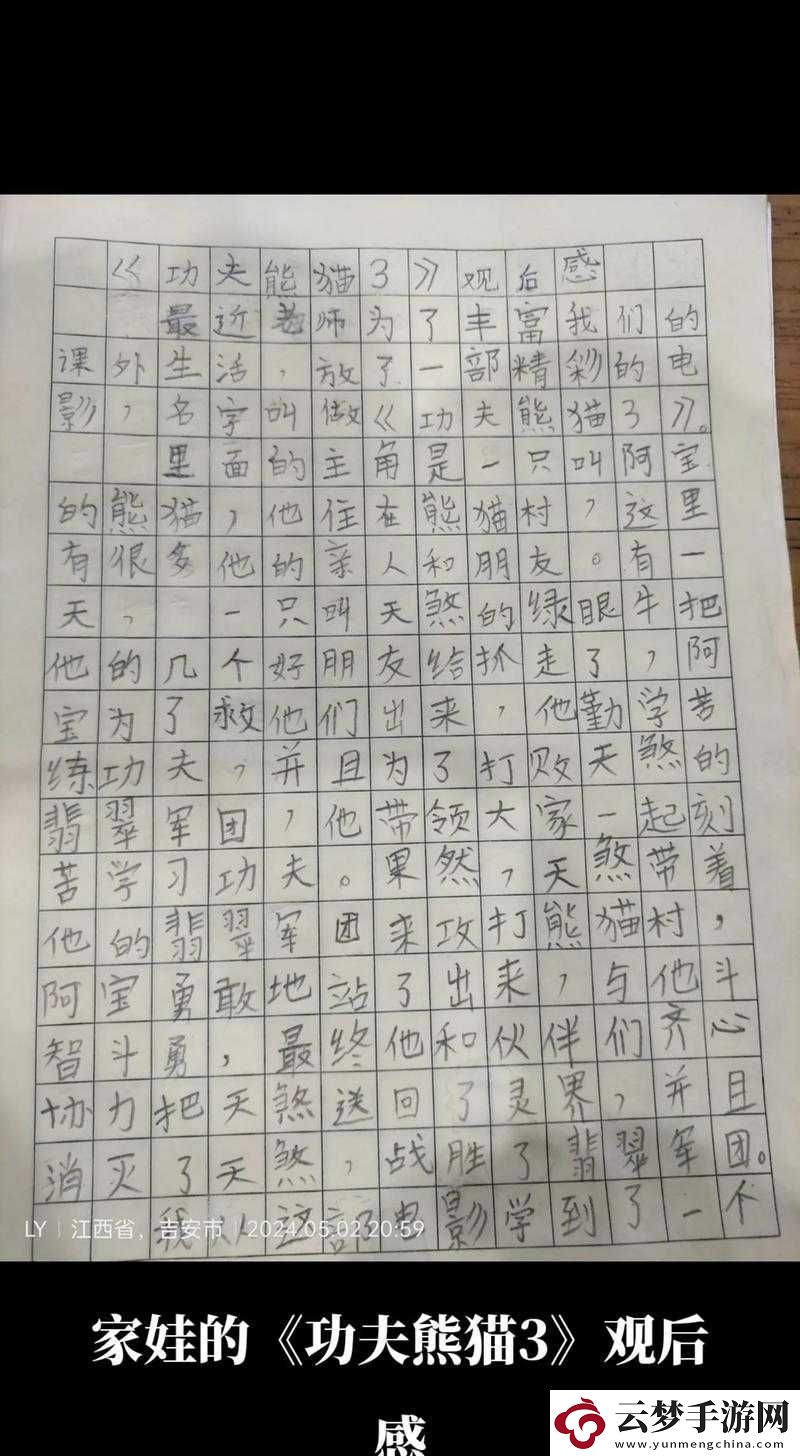 《功夫熊猫3》观后感
最近老师为了丰富我们的
课外生活，放了一部精彩的电
影，名字叫做《功夫熊猫3》。
里面的主角是一只叫阿宝
的熊猫，他住在熊猫村，这里
有很多他的亲人和朋友。有一
天，一只叫天煞的绿眼牛把
他的几个好朋友给抓走了，阿
宝为了救他们出来，他勤学苦
练功夫，并且为了打败天煞的
翡翠军团，他带领大家一起刻
苦学习功夫。果然，天煞带着
他的翡翠军团来攻打熊猫村，
阿宝勇敢地站了出来，与他斗
智斗勇，最终他和伙伴们齐心
协力把天煞送回了灵界，并且
消灭了天煞，战胜了翡翠军团。
我从这部电影学到了一个
LY | 江西省，吉安市 | 2024.05.02 20:59
家娃的《功夫熊猫3》观后
感
云梦手游网
www.yunmengchina.com